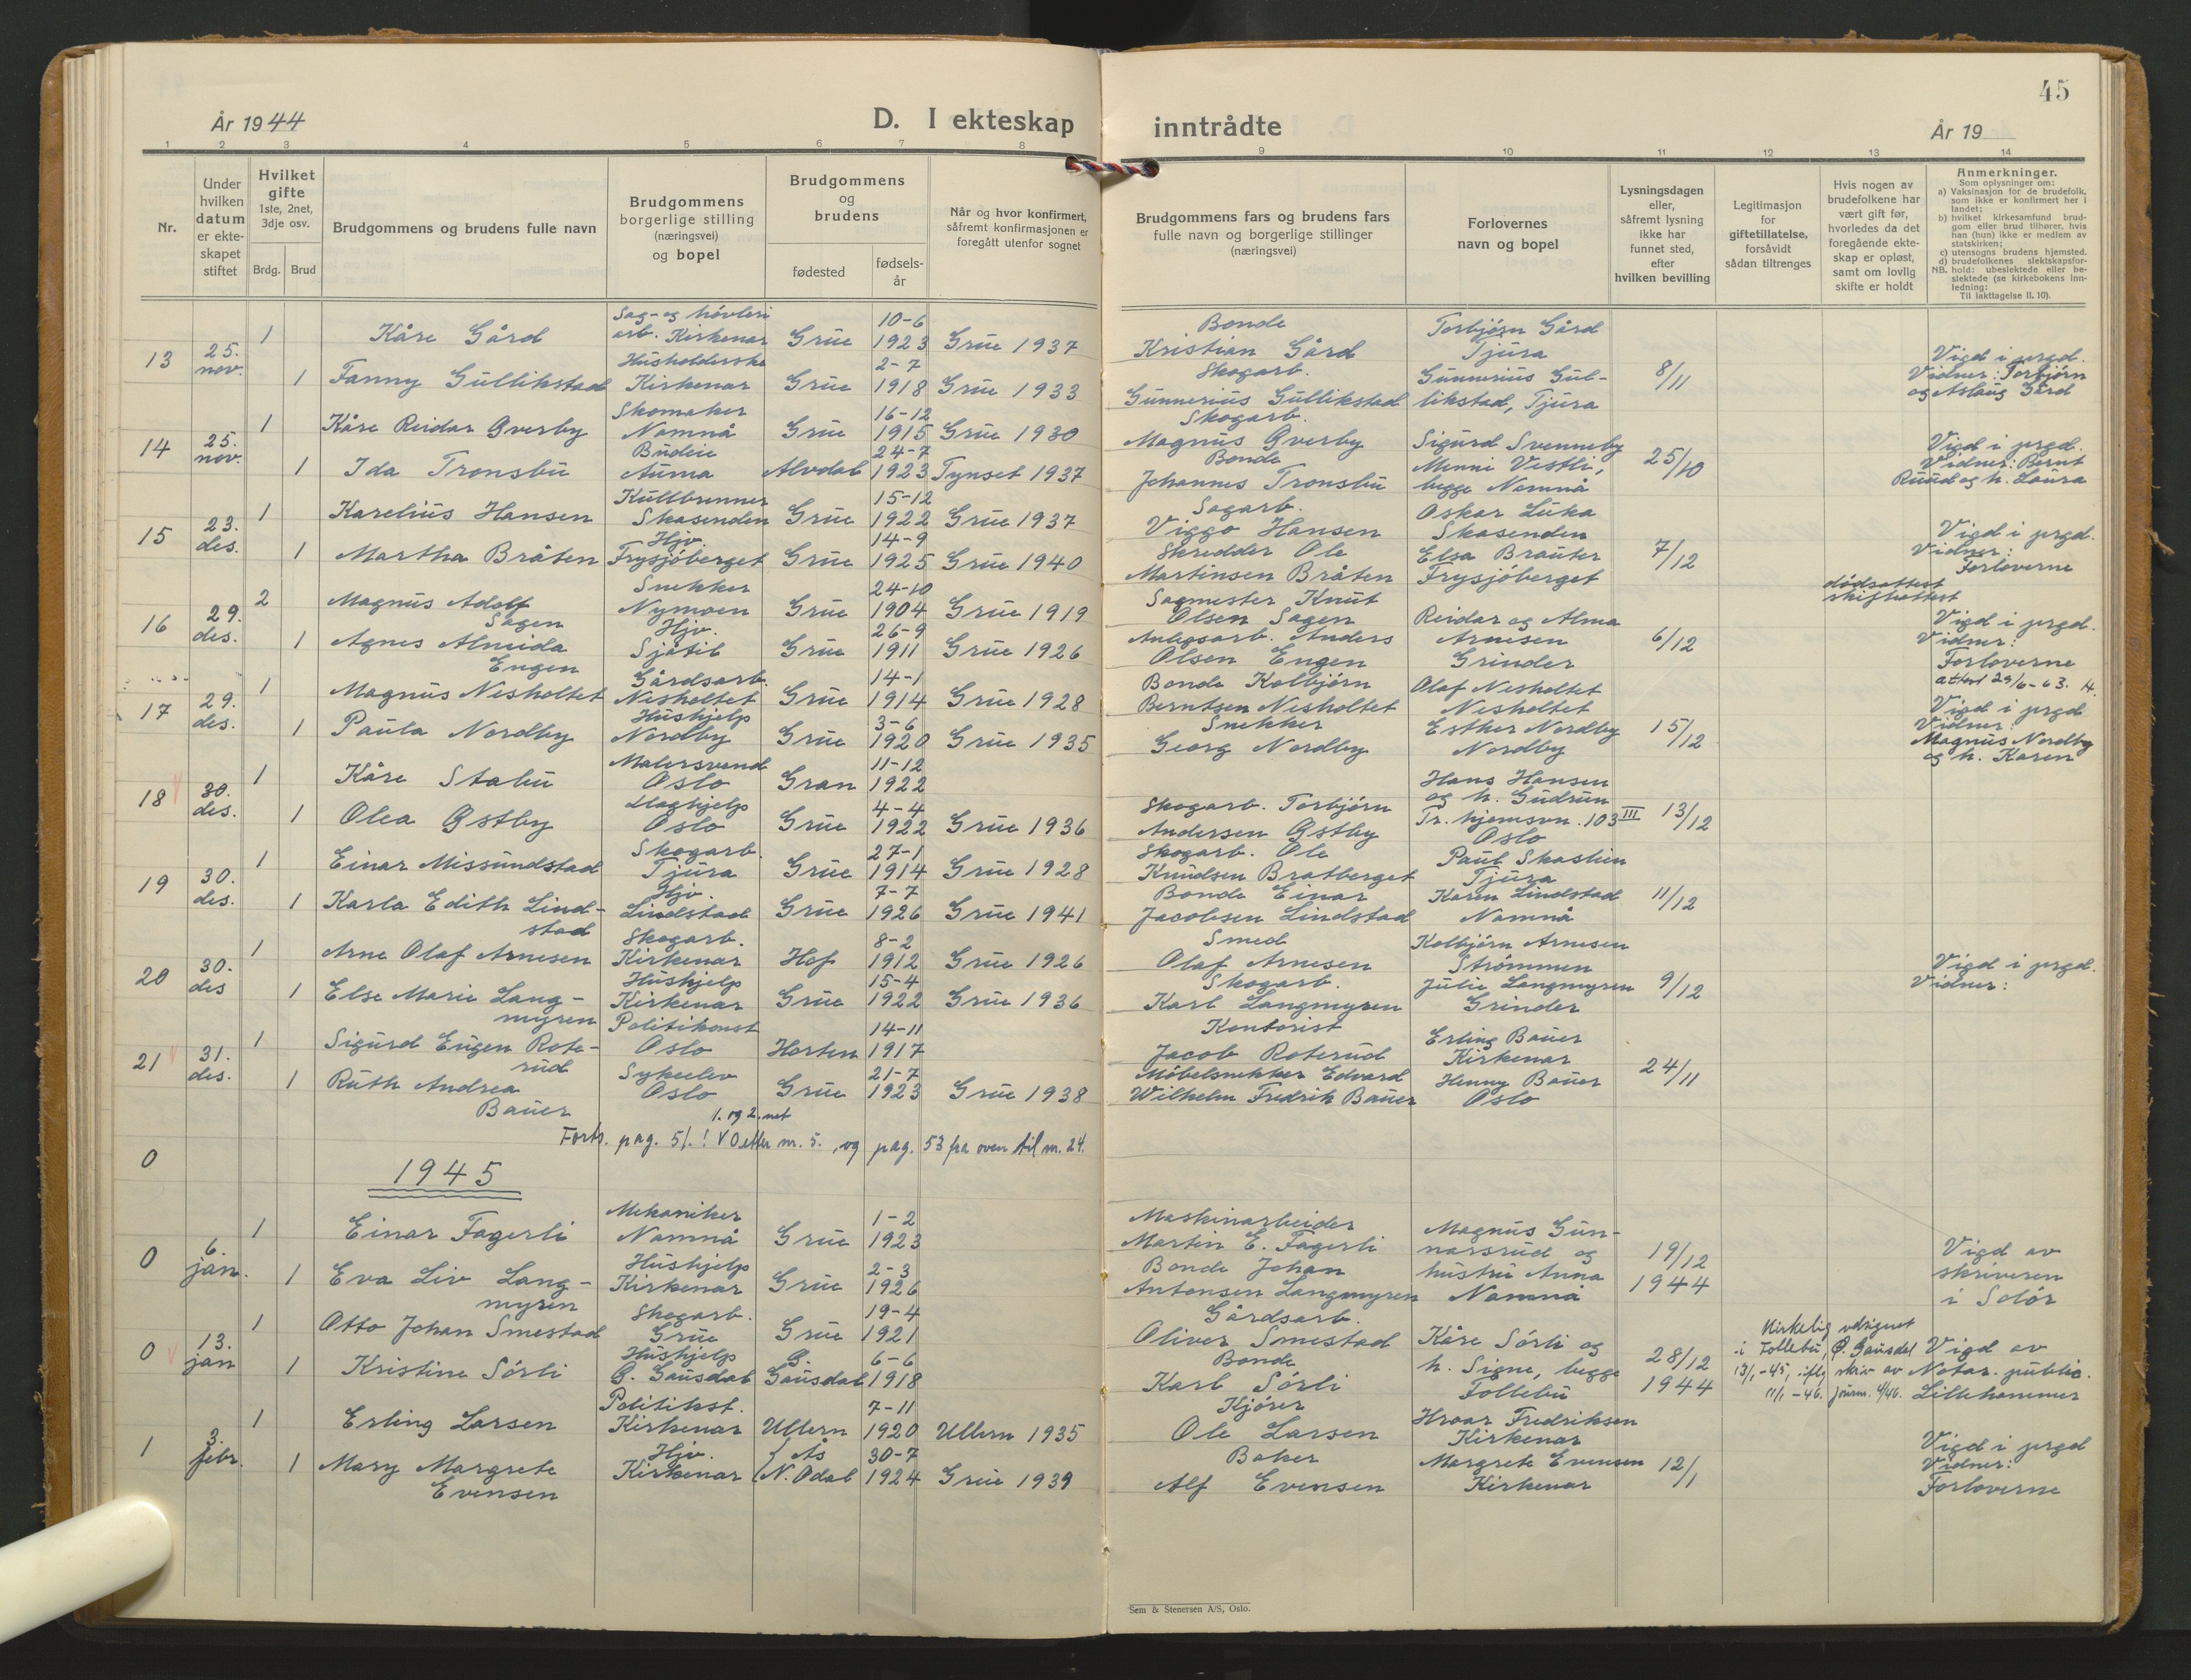 45
År 1944
D. I ekteskap inntrådte
År 19
1 2 3 4 5 6 7 8 9 10 11 12 13 14
Nr.
Under hvilken datum er ekteskapet stiftet
Hvilket gifte 1ste, 2net, 3dje osv.
Brdg. Brud
Brudgommens og brudens fulle navn
Brudgommens borgerlige stilling (næringsvei) og bopel
Brudgommens og brudens
fødested
fødselsår
Når og hvor konfirmert, såfremt konfirmasjonen er foregått utenfor sognet
Brudgommens fars og brudens fars fulle navn og borgerlige stillinger (næringsvei)
Forlovernes navn og bopel
Lysningsdagen eller, såfremt lysning ikke har funnet sted, efter hvilken bevilling
Legitimasjon for giftetillatelse, forsåvidt sådan tiltrenges
Hvis nogen av brudefolkene har vært gift før, hvorledes da det foregående ekteskap er opløst, samt om lovlig skifte er holdt
Anmerkninger.
Som oplysninger om:
a) Vaksinasjon for de brudefolk, som ikke er konfirmert her i landet;
b) hvilket kirkesamfund brudgom eller brud tilhører, hvis han (hun) ikke er medlem av statskirken;
c) utensogns brudens hjemsted.
d) brudefolkenes slektskapsforhold: ubeslektede eller beslektede (se kirkebokens innledning:
NB.
Til iakttagelse II, 10).
13 25. nov. 1 Kåre Gård Sag- og høvleri arb. Kirkenær Grue 10-6 1923 Grue 1937 Bonde Kristian Gård Torbjørn Gård Tjura
1 Fanny Gullikstad Husholderske Kirkenær Grue 2-7 1918 Grue 1933 Skogarb. Gunnerius Gullikstad Gunnerius Gullikstad, Tjura 8/11 Vigd i prgd. Vidner: Torbjørn og Aslaug Gård
14 25. nov. 1 Kåre Reidar Øverby Skomaker Namnå Grue 16-12 1915 Grue 1930 Skogarb. Magnus Øverby Sigurd Svenneby
1 Ida Tronsbu Budeie Auma Alvdal 24-7 1923 Tynset 1937 Bonde Johannes Tronsbu Menni Vestli, begge Namnå 25/10 Vigd i prgd. Vidner: Bernt Ruud og h. Laura
15 23. des. 1 Karelius Hansen Kullbrenner Skasenden Grue 15-12 1922 Grue 1937 Sagarb. Viggo Hansen Oskar Luka Skasenden
1 Martha Bråten Hjv. Frysjøberget Grue 14-9 1925 Grue 1940 Skredder Ole Martinsen Bråten Elsa Brauter Frysjøberget 7/12 Vigd i prgd. Vidner: Forloverne
16 29. des. 2 Magnus Adolf Sagen Snekker Nymoen Grue 24-10 1904 Grue 1919 Sagmester Knut Olsen Sagen Reidar og Alma Arnesen Grinder 6/12 dødsattest skifteattest
1 Agnes Almida Engen Hjv. Sjåtil Grue 26-9 1911 Grue 1926 Anlegsarb. Anders Olsen Engen Vigd i prgd. Vidner: Forloverne
attest 29/6-63. H.
17 29. des. 1 Magnus Nesholtet Gårdsarb. Nesholtet Grue 14-1 1914 Grue 1928 Bonde Kolbjørn Berntsen Nesholtet Olaf Nesholtet Nesholtet
1 Paula Nordby Hushjelp Nordby Grue 3-6 1920 Grue 1935 Snekker Georg Nordby Esther Nordby Nordby 15/12 Vigd i prgd Vidner: Magnus Nordby og h. Karen
18 30. des. 1 Kåre Stabu Malersvend Oslo Gran 11-12 1922 Hans Hansen og h. Gudrun
1 Olea Østby Oslo Grue 4-4 1922 Grue 1936 Skogarb. Torbjørn Andersen Østby Tr. hjemsvn. 103 III Oslo 13/12
19 30. des. 1 Einar Missundstad Skogarb. Tjura Grue 27-1 1914 Grue 1928 Skogarb. Ole Knudsen Bratberget Paul Skaslien Tjura
1 Karla Edith Lindstad Hjv. Lindstad Grue 7-7 1926 Grue 1941 Bonde Einar Jacobsen Lindstad Karen Lindstad Namnå 11/12
20 30. des 1 Arne Olaf Arnesen Skogarb. Kirkenær Hof 8-2 1912 Grue 1926 Smed Olaf Arnesen Kolbjørn Arnesen Strømmen
1 Else Marie Langmyren Hushjelp Kirkenær Grue 15-4 1922 Grue 1936 Skogarb. Karl Langmyren Julie Langmyren Grinder 9/12 Vigd i prgd. Vidner:
21 31. des. 1 Sigurd Eugen Roterud Politikonst Oslo Horten 14-11 1917 Kontorist Jacob Roterud Erling Bauer Kirkenær
1 Ruth Andrea Bauer Sykeelev Oslo Grue 21-7 1923 Grue 1938 Møbelsnekker Edvard Wilhelm Fredrik Bauer Henny Bauer Oslo 24/11
1. og 2. net
Forts. pag. 51.! V O etter nr. 5., og pag. 53 fra oven til nr. 24.
0
1945
0 6. jan. 1 Einar Fagerli Mekaniker Namnå Grue 1-2 1923 Maskinarbeider Martin E. Fagerli Magnus Gunnarsrud og hustru Anna Namnå 19/12 1944
1 Eva Liv Langmyren Hushjelp Kirkenær Grue 2-3 1926 Bonde Johan Antonsen Langmyren Vigd av skriveren i Solør
0 13. jan 1 Otto Johan Smestad Skogarb. Grue Grue 19-4 1921 Gårdsarb. Oliver Smestad Kåre Sørli og h. Signe, begge Follebu 28/12 1944
1 Kristine Sørli Hushjelp Ø. Gausdal Ø. Gausdal 6-6 1918 Bonde Karl Sørli Kirkelig velsignet i Follebu, Ø. Gausdal 13/1-45, iflg skriv av 11/1-46. journ. 4/46. Vigd av Notar. public. Lillehammer
1 3. febr. 1 Erling Larsen Politikst. Kirkenær Ullern 7-11 1920 Ullern 1935 Kjører Ole Larsen Hroar Fredriksen Kirkenær
1 Mary Margrete Evensen Hjv. Kirkenær Ås N. Odal 30-7 1924 Grue 1939 Baker Alf Evensen Margrete Evensen Kirkenær 12/1 Vigd i prgd Vidner: Forloverne
Sem & Stenersen A/S, Oslo.